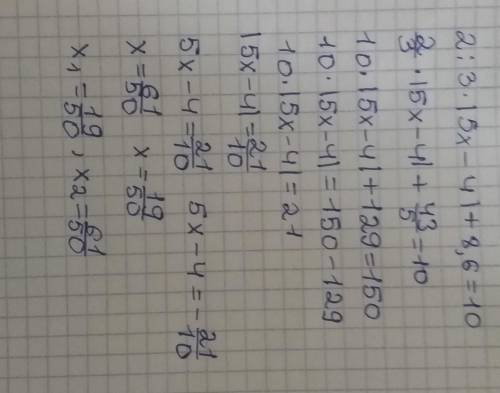 2:3·|5x-4|+8,6=10
2/3·|5x-4|+43/5=10
10·|5x-4|+129=150
10·|5x-4|=150-129
10·|5x-4|=21
|5x-4|=21/10
5x-4=21/10 5x-4=-21/10
x=61/50 x=19/50
x₁=19/50, x₂=61/50